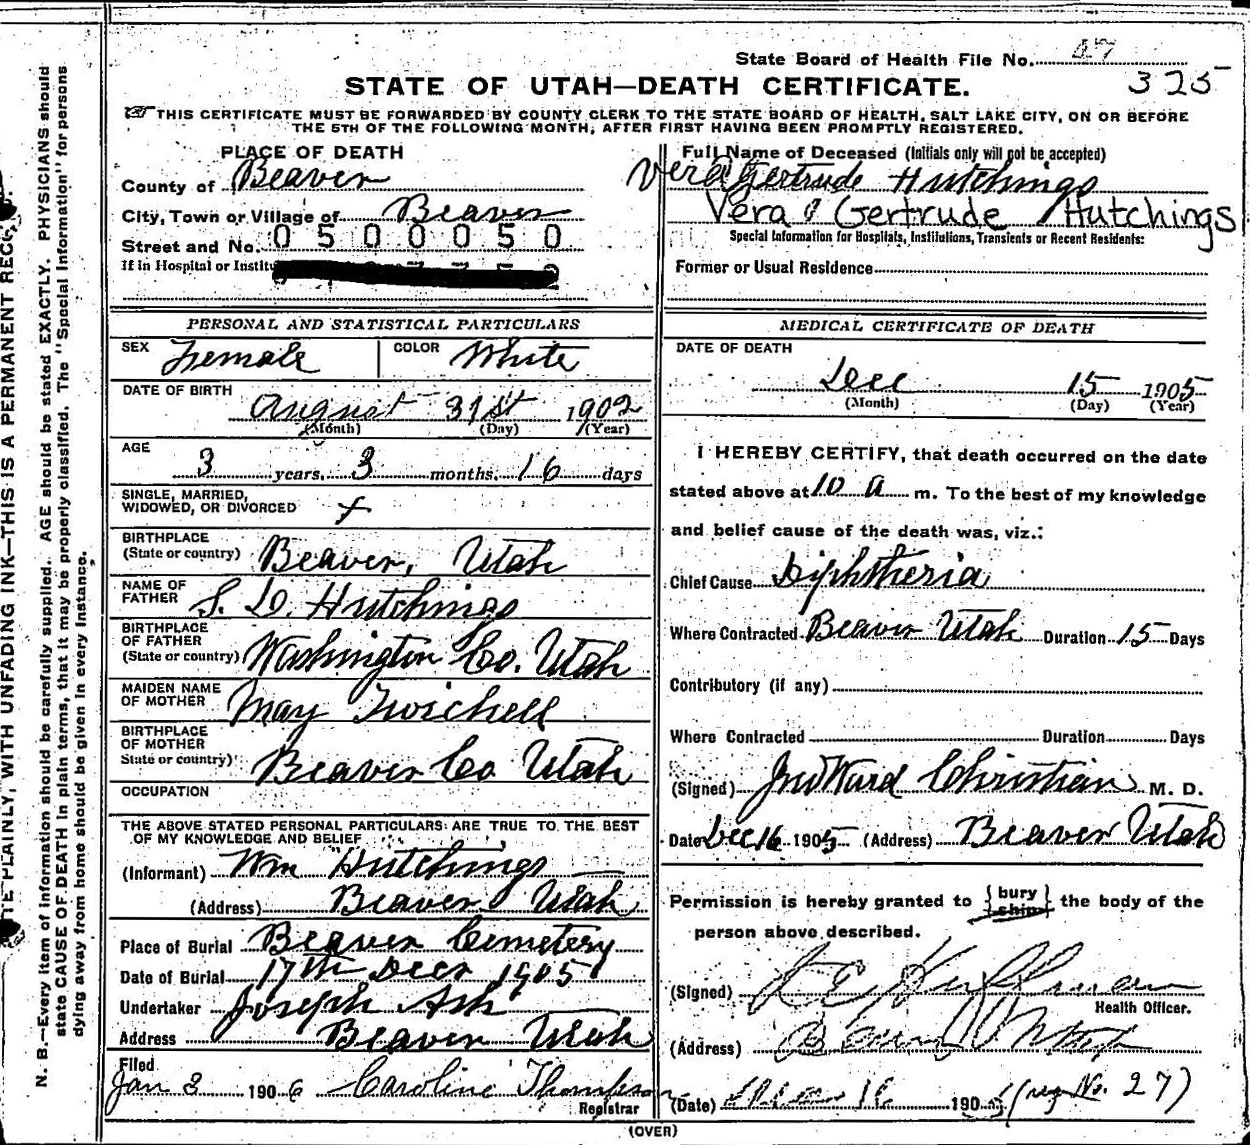 State Board of Health File No. 47
325
STATE OF UTAH—DEATH CERTIFICATE.
THIS CERTIFICATE MUST BE FORWARDED BY COUNTY CLERK TO THE STATE BOARD OF HEALTH, SALT LAKE CITY, ON OR BEFORE
THE 5TH OF THE FOLLOWING MONTH, AFTER FIRST HAVING BEEN PROMPTLY REGISTERED.
PLACE OF DEATH
County of Beaver
City, Town or Village of Beaver
Street and No. 0 5 0 0 0 5 0
If in Hospital or Institu
Full Name of Deceased (Initials only will not be accepted)
Vera Gertrude Hutchings
Vera Gertrude Hutchings
Special Information for Hospitals, Institutions, Transients or Recent Residents:
Former or Usual Residence
PERSONAL AND STATISTICAL PARTICULARS
SEX Female COLOR White
DATE OF BIRTH
August 31st 1902
(Month) (Day) (Year)
AGE
3 years, 3 months, 16 days
SINGLE, MARRIED,
WIDOWED, OR DIVORCED
BIRTHPLACE
(State or country) Beaver, Utah
NAME OF
FATHER S. D. Hutchings
BIRTHPLACE
OF FATHER
(State or country) Washington Co. Utah
MAIDEN NAME
OF MOTHER May Twichell
BIRTHPLACE
OF MOTHER
State or country) Beaver Co Utah
OCCUPATION
THE ABOVE STATED PERSONAL PARTICULARS ARE TRUE TO THE BEST
OF MY KNOWLEDGE AND BELIEF
(Informant) Wm Hutchings
(Address) Beaver Utah
Place of Burial Beaver Cemetery
Date of Burial 17th Decr 1905
Undertaker Joseph Ash
Address Beaver Utah
Filed
Jan 3 1906 Caroline Thompson
Registrar
MEDICAL CERTIFICATE OF DEATH
DATE OF DEATH
Dec 15 1905
(Month) (Day) (Year)
I HEREBY CERTIFY, that death occurred on the date
stated above at 10 a m. To the best of my knowledge
and belief cause of the death was, viz.:
Chief Cause Diphtheria
Where Contracted Beaver Utah Duration 15 Days
Contributory (if any)
Where Contracted Duration Days
(Signed) Ward Christian M. D.
Date Dec 16 1905 (Address) Beaver Utah
Permission is hereby granted to {bury
ship} the body of the
person above described.
(Signed)
Health Officer.
(Address) Beaver Utah
(Date) 16 1905 (reg No. 27)
(OVER)
TE PLAINLY, WITH UNFADING INK—THIS IS A PERMANENT RECO
N. B.—Every item of information should be carefully supplied. AGE should be stated EXACTLY. PHYSICIANS should
state CAUSE OF DEATH in plain terms, that it may be properly classified. The "Special Information" for persons
dying away from home should be given in every instance.